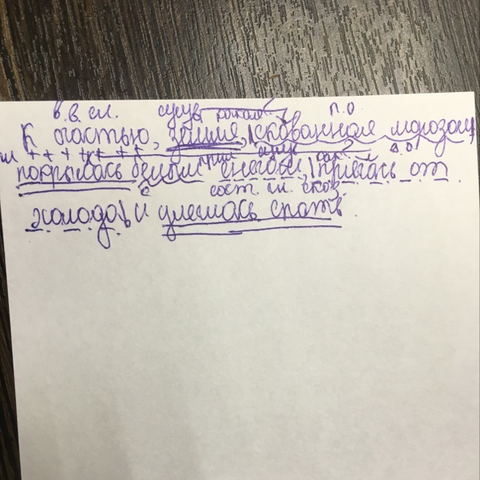 в.в. сл. сущ. какая? п.о.
К счастью, земля, скованная морозом,
гл. прил. сущ. как? д.о.
покрылась белым снегом, прячась от
сост. гл. сказ.
холода, и улеглась спать.